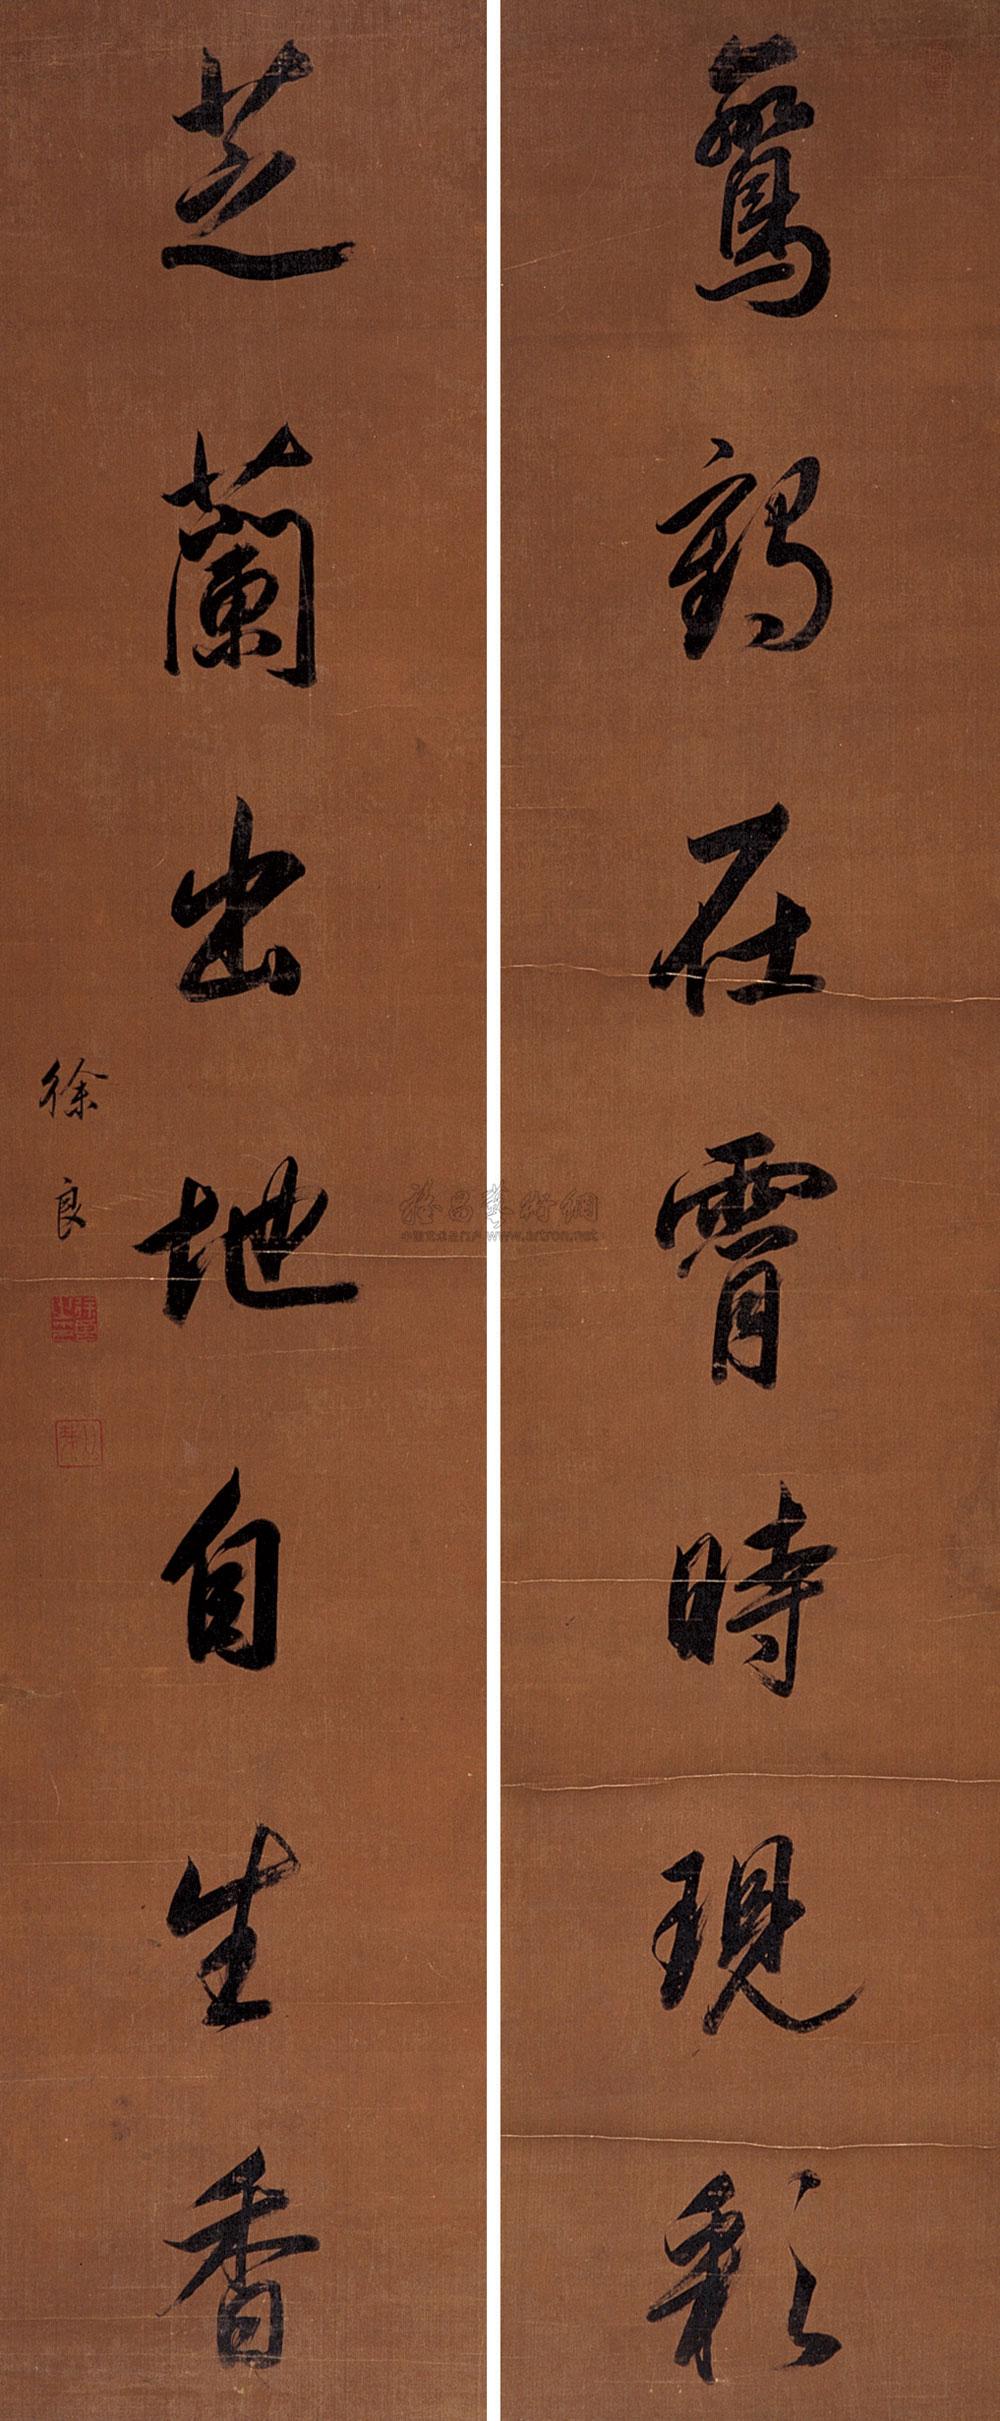 鸞鶴在霄時現彩
芝蘭出地自生香
徐良
雅昌藝術網
www.artron.net